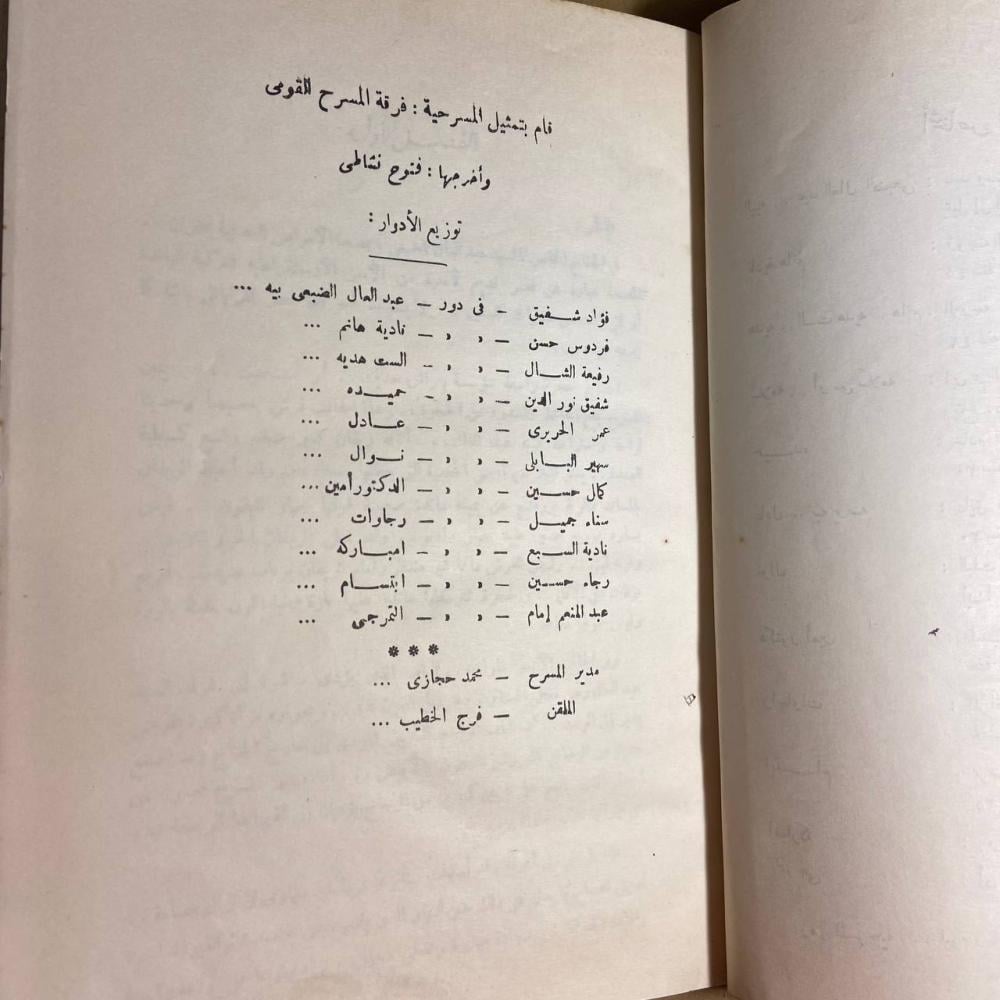 قام بتمثيل المسرحية : فرقة المسرح القومى
وأخرجها : فتوح نشاطى
توزيع الأدوار :
فؤاد شفيق – فى دور – عبد العال الضبعى بيه ...
فردوس حسن – » » – نادية هانم ...
رفيعة الشال – » » – الست هديه ...
شفيق نور الدين – » » – حميده ...
عمر الحريرى – » » – عادل ...
سهير البابلى – » » – نوال ...
كمال حسين – » » – الدكتور أمين ...
سناء جميل – » » – رجاوات ...
نادية السبع – » » – امباركه ...
رجاء حسين – » » – ابتسام ...
عبد المنعم إمام – » » – التمرجى ...
* * *
مدير المسرح – محمد حجازى ...
الملقن – فرج الخطيب ...